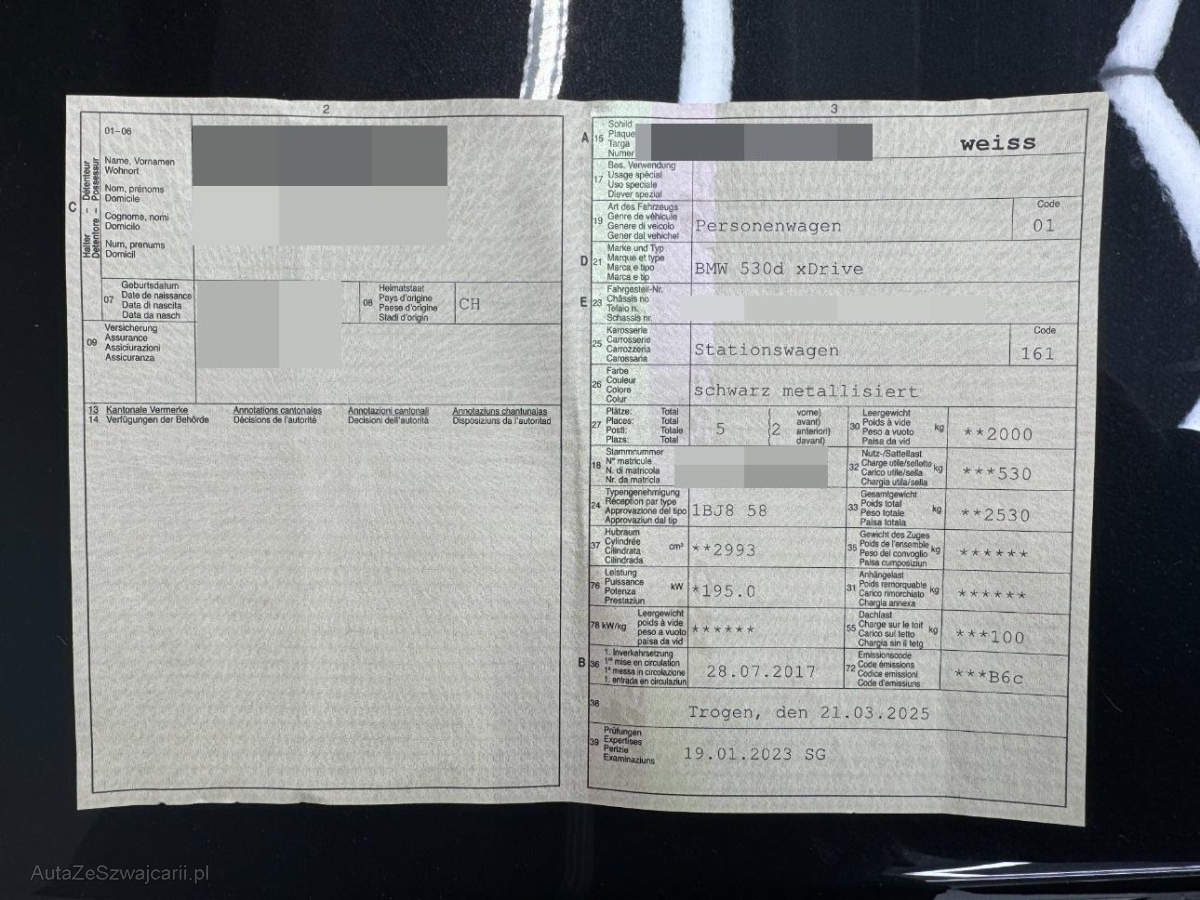 2
01–06
Name, Vornamen
Wohnort
Nom, prénoms
Domicile
Cognome, nomi
Domicilo
Num, prenums
Domicil
C
Halter – Détenteur
Detentore – Possessur
07
Geburtsdatum
Date de naissance
Data di nascita
Data da nasch
08
Heimatstaat
Pays d'origine
Paese d'origine
Stadi d'origin
CH
09
Versicherung
Assurance
Assiciurazioni
Assicuranza
13 Kantonale Vermerke Annotations cantonales Annotazioni cantonali Annotaziuns chantunalas
14 Verfügungen der Behörde Décisions de l'autorité Decisioni dell'autorità Disposiziuns da l'autoritad
3
A 15
Schild
Plaque
Targa
Numer
weiss
17
Bes. Verwendung
Usage spécial
Uso speciale
Diever spezial
19
Art des Fahrzeugs
Genre de véhicule
Genere di veicolo
Gener dal vehichel
Personenwagen
Code
01
D 21
Marke und Typ
Marque et type
Marca e tipo
Marca e tip
BMW 530d xDrive
E 23
Fahrgestell-Nr.
Châssis no
Telaio n.
Schassis nr.
25
Karosserie
Carrosserie
Carrozzeria
Carossaria
Stationswagen
Code
161
26
Farbe
Couleur
Colore
Colur
schwarz metallisiert
27
Plätze: Total
Places: Total
Posti: Totale
Plazs: Total
5
(2
vorne)
avant)
anteriori)
davant)
30
Leergewicht
Poids à vide
Peso a vuoto
Paisa da vid
kg
**2000
18
Stammnummer
N° matricule
N. di matricola
Nr. da matricla
32
Nutz-/Sattellast
Charge utile/sellette
Carico utile/sella
Chargia utila/sella
kg
***530
24
Typengenehmigung
Réception par type
Approvazione del tipo
Approvaziun dal tip
1BJ8 58
33
Gesamtgewicht
Poids total
Peso totale
Paisa totala
kg
**2530
37
Hubraum
Cylindrée
Cilindrata
Cilindrada
cm³
**2993
35
Gewicht des Zuges
Poids de l'ensemble
Peso del convoglio
Paisa cumposiziun
kg
******
76
Leistung
Puissance
Potenza
Prestaziun
kW
*195.0
31
Anhängelast
Poids remorquable
Carico rimorchiato
Chargia annexa
kg
******
78 kW/kg
Leergewicht
poids à vide
peso a vuoto
paisa da vid
******
55
Dachlast
Charge sur le toit
Carico sul tetto
Chargia sin il tetg
kg
***100
B 36
1. Inverkehrsetzung
1re mise en circulation
1a messa in circolazione
1. entrada en circulaziun
28.07.2017
72
Emissionscode
Code émissions
Codice emissioni
Code d'emissiuns
***B6c
38
Trogen, den 21.03.2025
39
Prüfungen
Expertises
Perizie
Examinaziuns
19.01.2023 SG
AutaZeSzwajcarii.pl